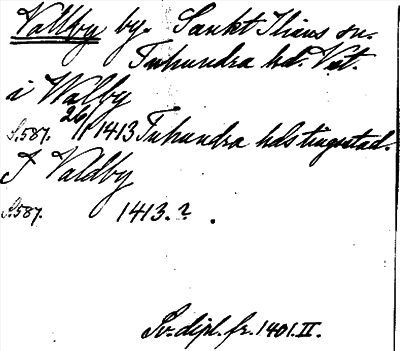 Vallby by. Sankt Ilians sn.
Tuhundra hd. Vstt.
i Walby
S.587. 26/11 1413 Tuhundra hds tingsstad.
I Valdby
S.587. 1413.?.
Sv. dipl. fr. 1401. II.